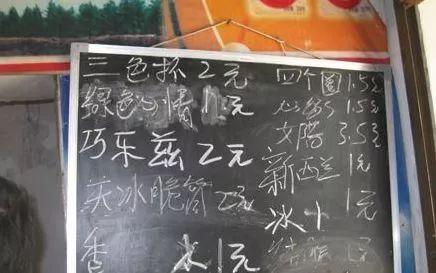 三色杯2元
绿色心情1元
巧乐兹2元
天冰脆筒2元
香 米1元
四个圈1.5元
1.5元
文隆3.5元
新西兰1元
冰 1元
1元